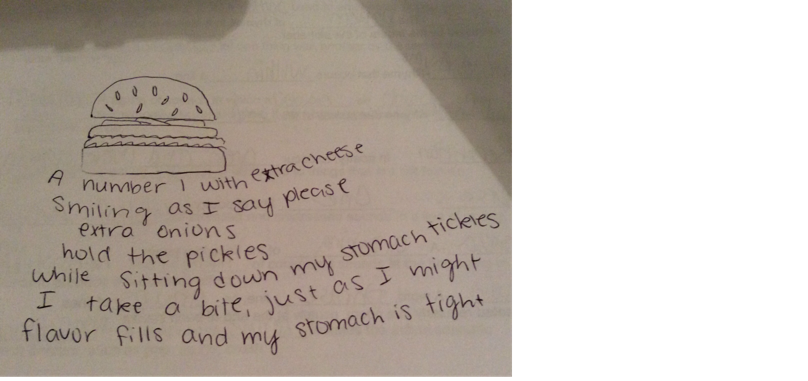 A number 1 with extra cheese
Smiling as I say please
extra onions
hold the pickles
while sitting down my stomach tickles
I take a bite, just as I might
flavor fills and my stomach is tight